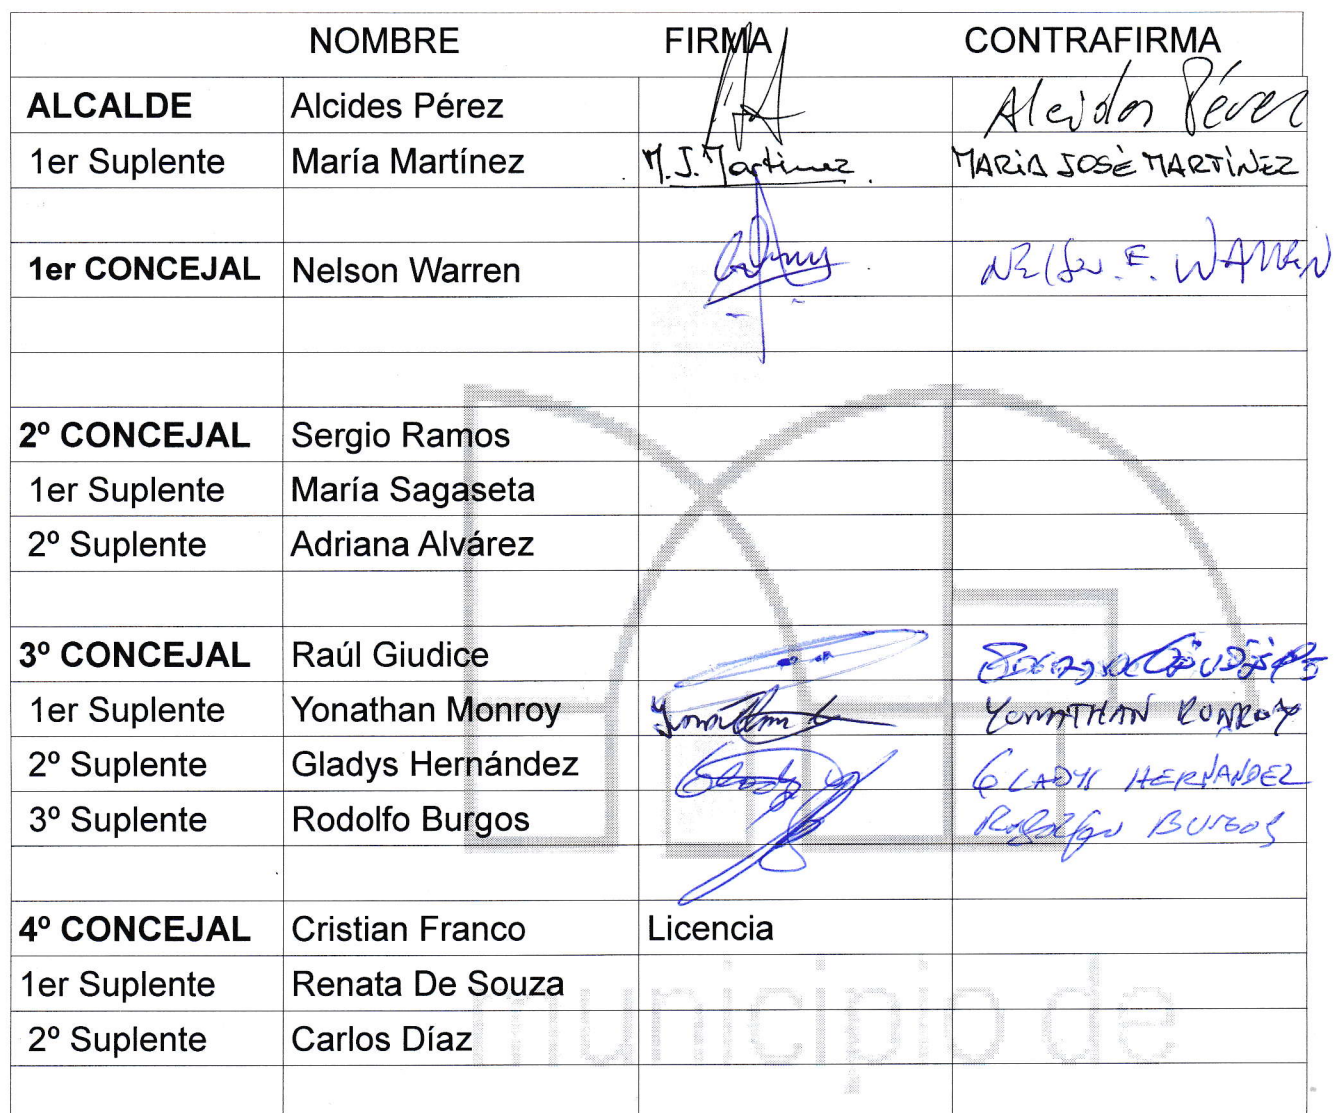 NOMBRE FIRMA CONTRAFIRMA
ALCALDE Alcides Pérez Alcides Pérez
1er Suplente María Martínez M. J. Martinez MARÍA JOSÈ MARTÍNEZ
1er CONCEJAL Nelson Warren Nelson E. WARREN
2º CONCEJAL Sergio Ramos
1er Suplente María Sagaseta
2º Suplente Adriana Alvárez
3º CONCEJAL Raúl Giudice
1er Suplente Yonathan Monroy Yonathan YONATHAN MONROY
2º Suplente Gladys Hernández Gladys GLADYS HERNANDEZ
3º Suplente Rodolfo Burgos Rodolfo BURGOS
4º CONCEJAL Cristian Franco Licencia
1er Suplente Renata De Souza
2º Suplente Carlos Díaz
municipio de